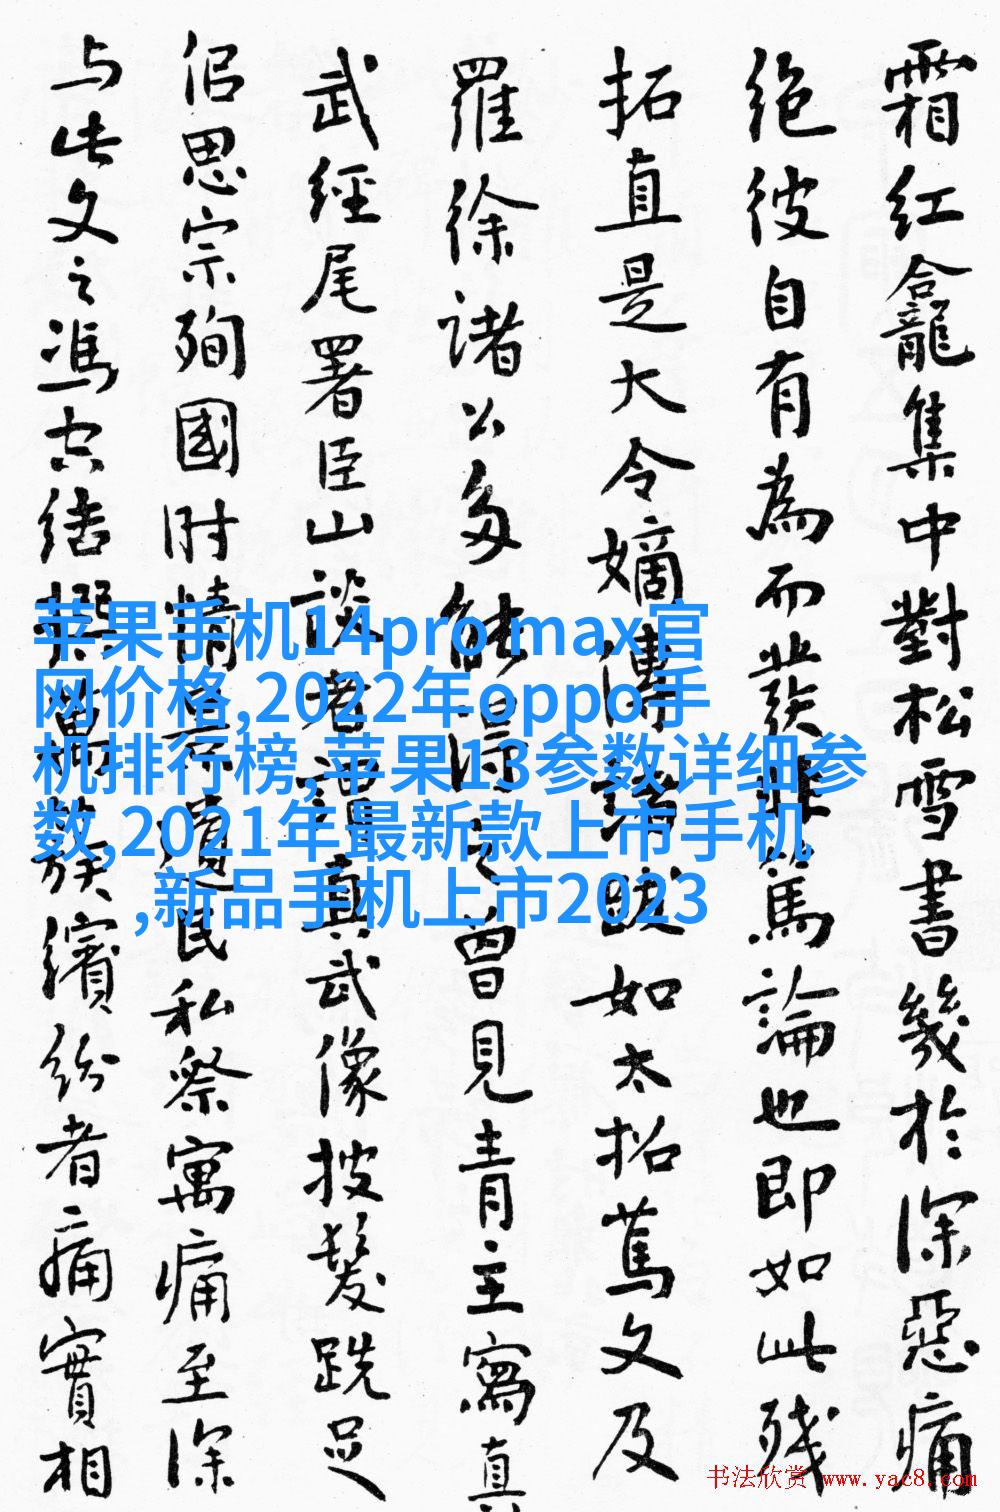 霜红龕集中對松雪書幾於深惡痛
绝彼自有為而發非篤論也即如此残
拓直是大令嫡傳如太拓篤文及
羅徐諸公多能得之曾見青主寫真
武經尾署臣山談者謂真武像披髮跣足
侣思宗殉國时情景遺民私察寓痛至深
与此文之馮空结撰缤纷者痛實相
苹果手机14pro max官
网价格,2022年oppo手
机排行榜,苹果13参数详细参
数,2021年最新款上市手机
,新品手机上市2023
书法欣赏 www.yac8.com